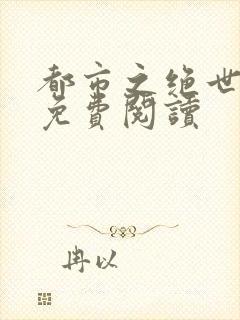 都市之绝世
免費閱讀
冉以